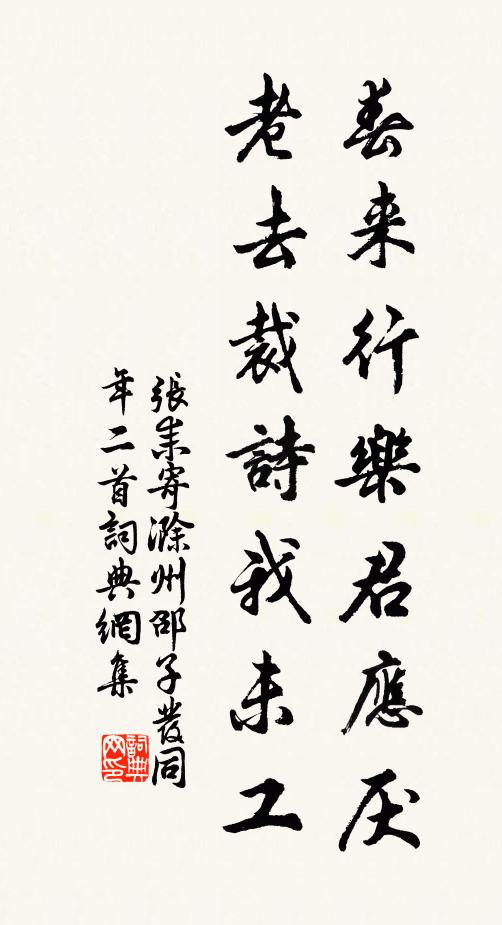 春来行樂君應厌
老去裁詩我未工
張耒寄滁州邵子發同
年二首詞典網集
詞典
网印